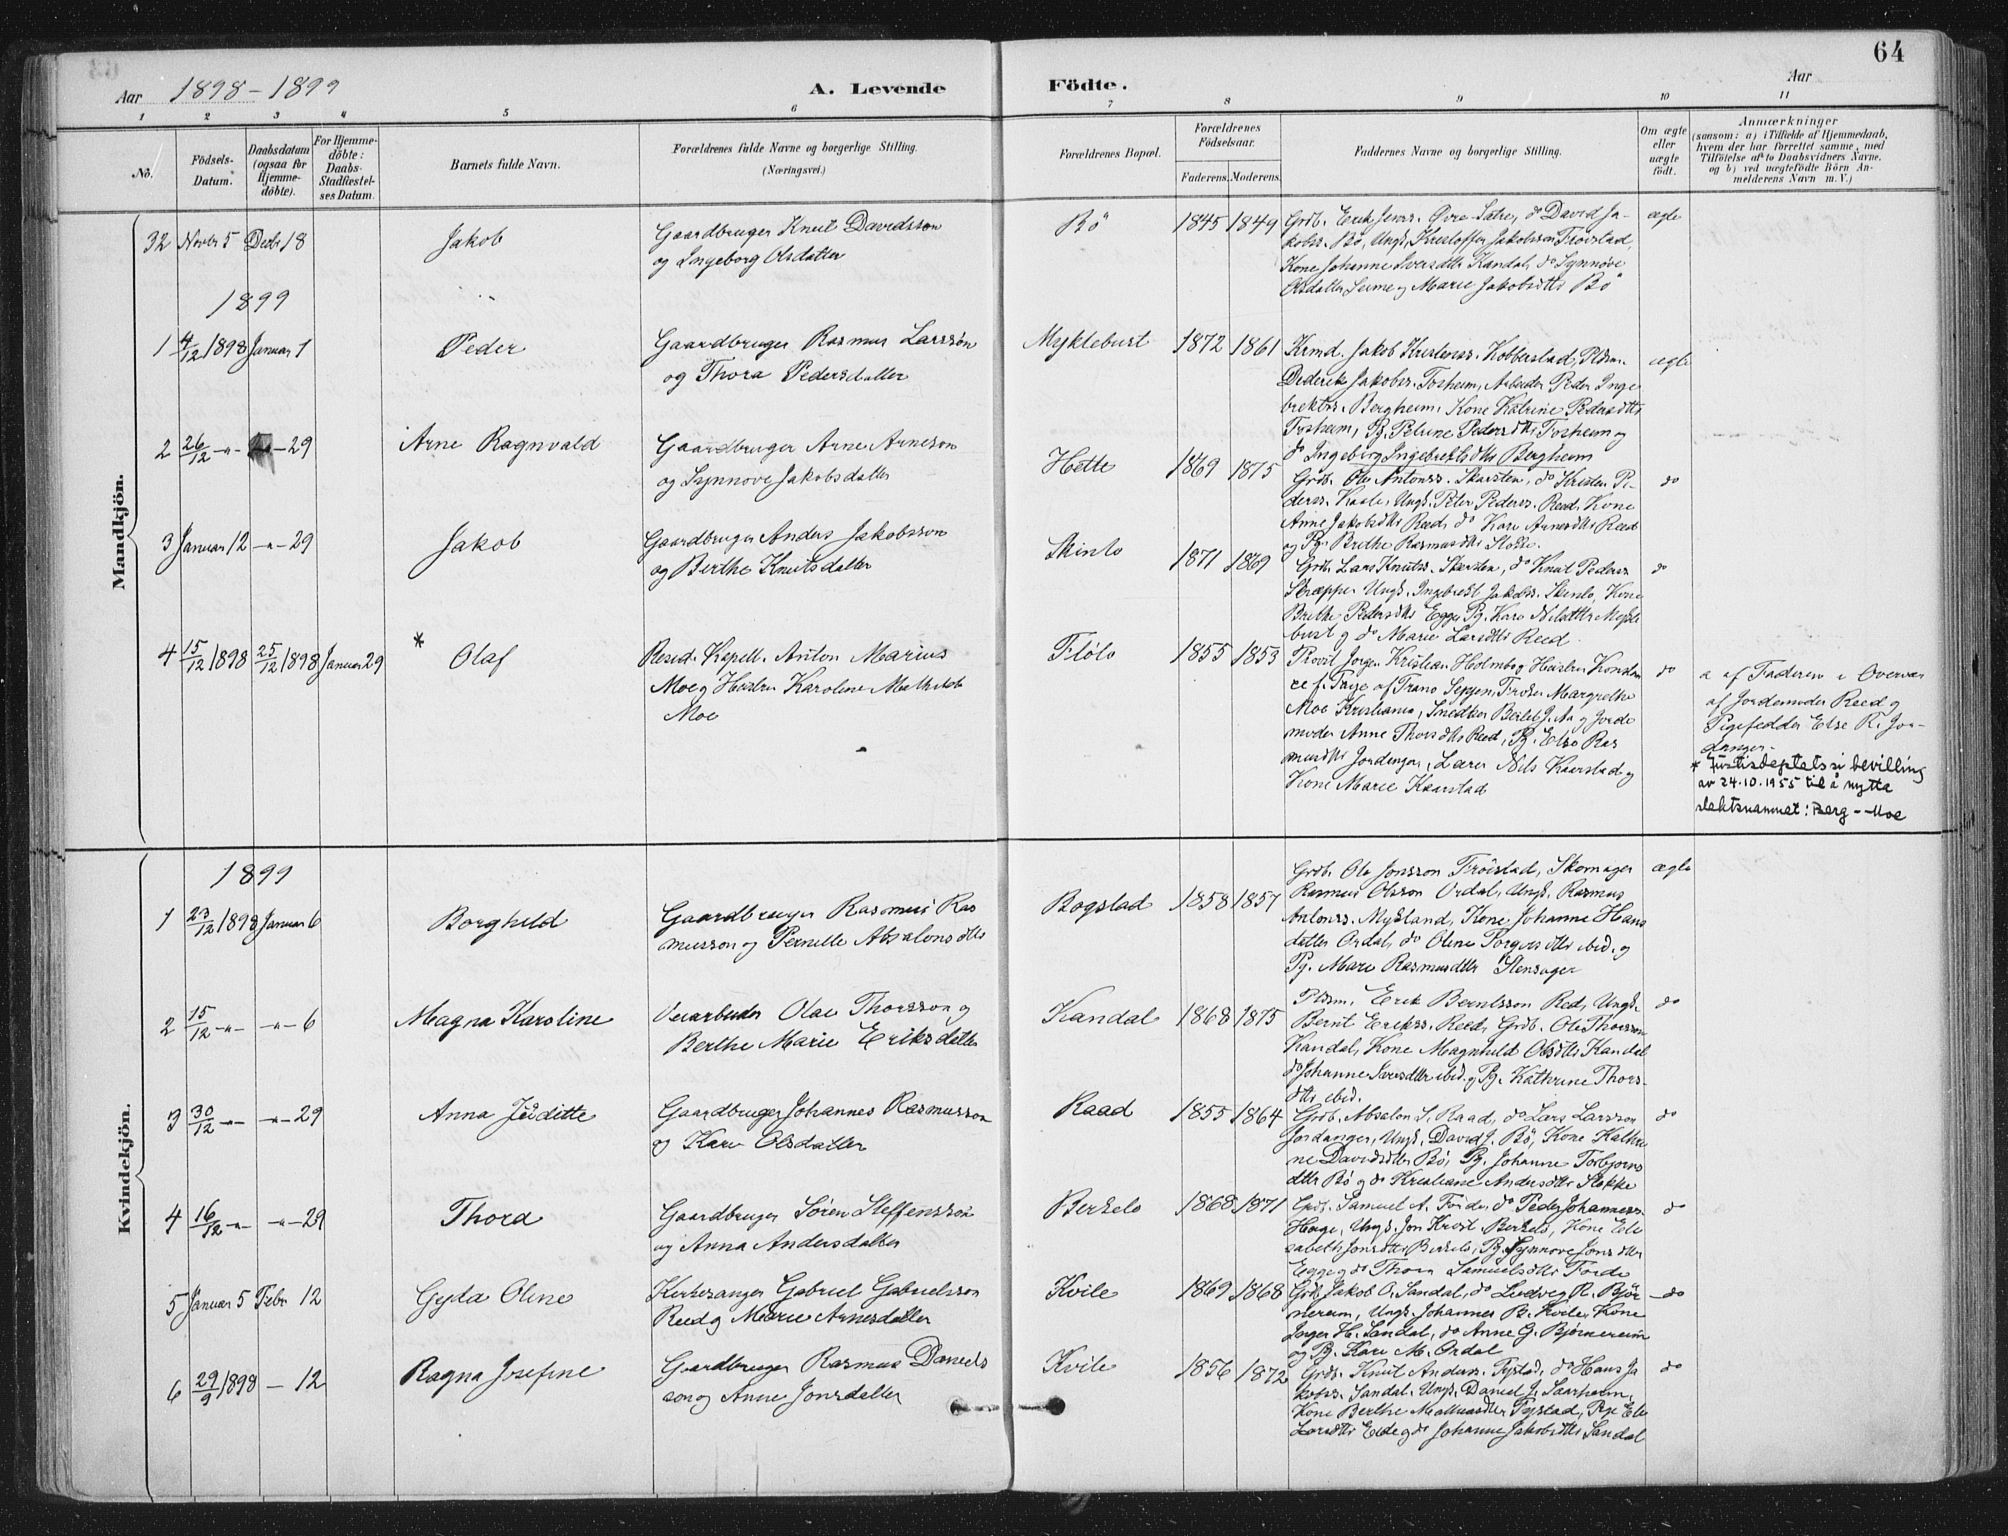 64
Aar 1898-1899
A. Levende
Födte.
Aar
1 2 3 4 5 6 7 8 9 10 11
No.
Födsels-Datum.
Daabsdatum (ogsaa for Hjemme-döbte).
For Hjemme-döbte: Daabs-Stadfæstel-ses Datum.
Barnets fulde Navn.
Forældrenes fulde Navne og borgerlige Stilling. (Næringsvei.)
Forældrenes Bopæl.
Forældrenes Födselsaar.
Faderens. Moderens.
Faddernes Navne og borgerlige Stilling.
Om ægte eller uægte födt.
Anmærkninger
(saasom: a) i Tilfælde af Hjemmedaab,
hvem der har forrettet samme, med
Tilföielse af to Daabsvidners Navne,
og b) ved uægtefödte Börn An-
melderens Navn m. V.)
Mandkjön.
32 Novbr 5 Decbr 18 Jakob
Gaardbruger Knut Davidsson
og Ingeborg Olsdatter
Bö 1845 1849
Grdb. Erik Jenss. Øvre-Sætre, do David Ja-
kobss. Bö, Ungk. Kristoffer Jakobsson Fröistad,
Kone Johanne Iversdatter Kandal, do Synnöve
Olsdatter Seime og Marie Jakobsdtr Bö
ægte
1899
1 4/12 1898 Januar 1 Peder
Gaardbruger Rasmus Larssön
og Thora Pedersdatter
Myklebust 1872 1861
Krmd. Jakob Kristenss. Kobberstad, Pldsm.
Diderik Jakobss. Fosheim, Arbeider Peder Inge
brektss. Bergheim, Kone Katrine Pedersdtr
Fosheim, Pg. Petrine Pedersdtr Fosheim og
do Ingeborg Ingebrektsdtr Bergheim
ægte
2 26/12 -"- -29 Arne Ragnvald
Gaardbruger Arne Arneson
og Synnove Jakobsdatter
Hette 1869 1875
Grdb. Ole Antonss. Skarsten, do Kristen Pe-
derss. Kaale, Ungk. Peter Pederss. Reed, Kone
Anne Jakobsdtr Reed, do Kari Arnesdtr Reed
og Pg. Brithe Rasmusdtr
do
3 Januar 12 -"- 29 Jakob
Gaardbruger Anders Jakobsson
og Berthe Knutsdatter
Skinlo 1871 1869
Grdb. Lars Knutss. Skarsten, do Knut Pederss
Ungk. Ingebrekt Jakobss. Skinlo, Kone
Brithe Pedersdtr Egge, Pg. Kari Nilsdtr Mykle
bust og do Marie Larsdtr Reed.
do
4 15/12 1898 25/12 1898 Januar 29 * Olaf
Resid. Kapell. Anton Marius
Moe og Hustru Karoline Mathilde
Moe
Flölo 1855 1853
Provst Jörgen Kristian Holmbog Hustru Konstan
ce f. Frøken Margrethe
Moe Kristiania, Berlet J. Aa og Jorde
moder Anne Thorsdtr Reed, Pg. Else Ras
musdtr Jordanger, Lærer Nils Kaarstad og
Kone Marie Kaarstad
do
a af Faderen i Overvær
af Jordemoder Reed og
Else R. Jor-
danger.
* Justisdeptets bevilling
av 24.10.1955 til å nytta
slektsnamnet: Berg-Moe
Kvindekjön.
1899
1 23/12 1898 Januar 6 Borghild
Gaardbruger Rasmus Ras
musson og Pernille Absalonsdtr
Bogstad 1858 1857
Grdb. Ole Jonsson Fröistad, Skomager
Rasmus Olsson Ordal, Ungk. Rasmus
Antonss. Mykland, Kone Johanne Hans
datter Ordal, do Oline Torgersdtr ibid. og
Pg. Mari Rasmusdtr Stensager
ægte
2 15/12 -"- -"- 6 Magna Karoline
Veiarbeider Olai Thorsson og
Berthe Marie Eriksdatter
Kandal 1868 1875
Pldsm. Erik Berntsson Red, Ungk.
Bernt Erikss. Reed, Grdb. Ole Thorsson
Kandal, Kone Magnhild Olsdtr Kandal
do Johanne Iversdtr ibid. og Pg. Kathrine Thors-
dtr ibid.
do
3 30/12 -"- -"- 29 Anna Juditte
Gaardbruger Johannes Rasmusson
og Kari Olsdatter
Raad 1855 1864
Grdb. Absalon S. Raad, do Lars Larsson
Jordanger, Ungk. David J. Bö, Kone Kathri
ne Davidsdtr Bö, Pg. Johanne Torbjörns
dtr Bö og do Kristiane Andersdtr Stokke
do
4 16/12 -"- -"- 29 Thora
Gaardbruger Sören Steffensson
og Anna Andersdatter
Berkelo 1868 1871
Grdb. Samuel A. Förde, do Peder Johanness.
Hauge, Ungk. Jon Berkelo, Kone Eli
sabeth Jonsdtr Berkelo, Pg. Synnove Jonsdtr
Egge og do Thora Samuelsdtr Förde
do
5 Januar 5 Febr 12 Gyda Oline
Kirkesanger Gabriel Gabrielsson
Reed og Marie Arnesdatter
Kvile 1869 1868
Grdb. Jakob O. Sandal, do Ludvig R. Björ-
nereim, Ungk. Johannes B. Kvile, Kone
Inger H. Sandal, do Anne G. Björnereim
og Pg. Kari M. Ordal
do
6 29/9 1898 - 12 Ragna Josefine
Gaardbruger Rasmus Daniels
son og Anne Jonsdatter
Kvile 1856 1872
Grdb. Knut Anderss. Fystad, do Hans Ja
kobss. Sandal, Ungk. Daniel J. Saarheim,
Kone Berthe Mathiasdtr Fystad, Pige Eli
Larsdtr Eide og do Johanne Jakobsdtr Sandal
do